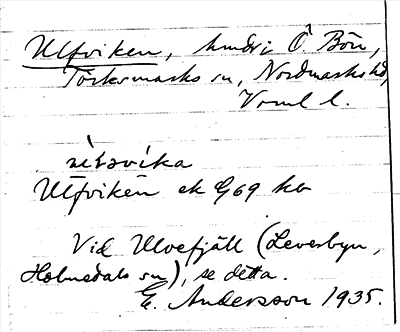 Ulfviken, hmdr i Ö. Bön,
Töcksmarks sn, Nordmarks hd,
Vrml l.
Ulfviken ek G69 kb
Vid Ulvefjäll (Leverbyn,
Holmedals sn), se detta.
E. Andersson 1935.